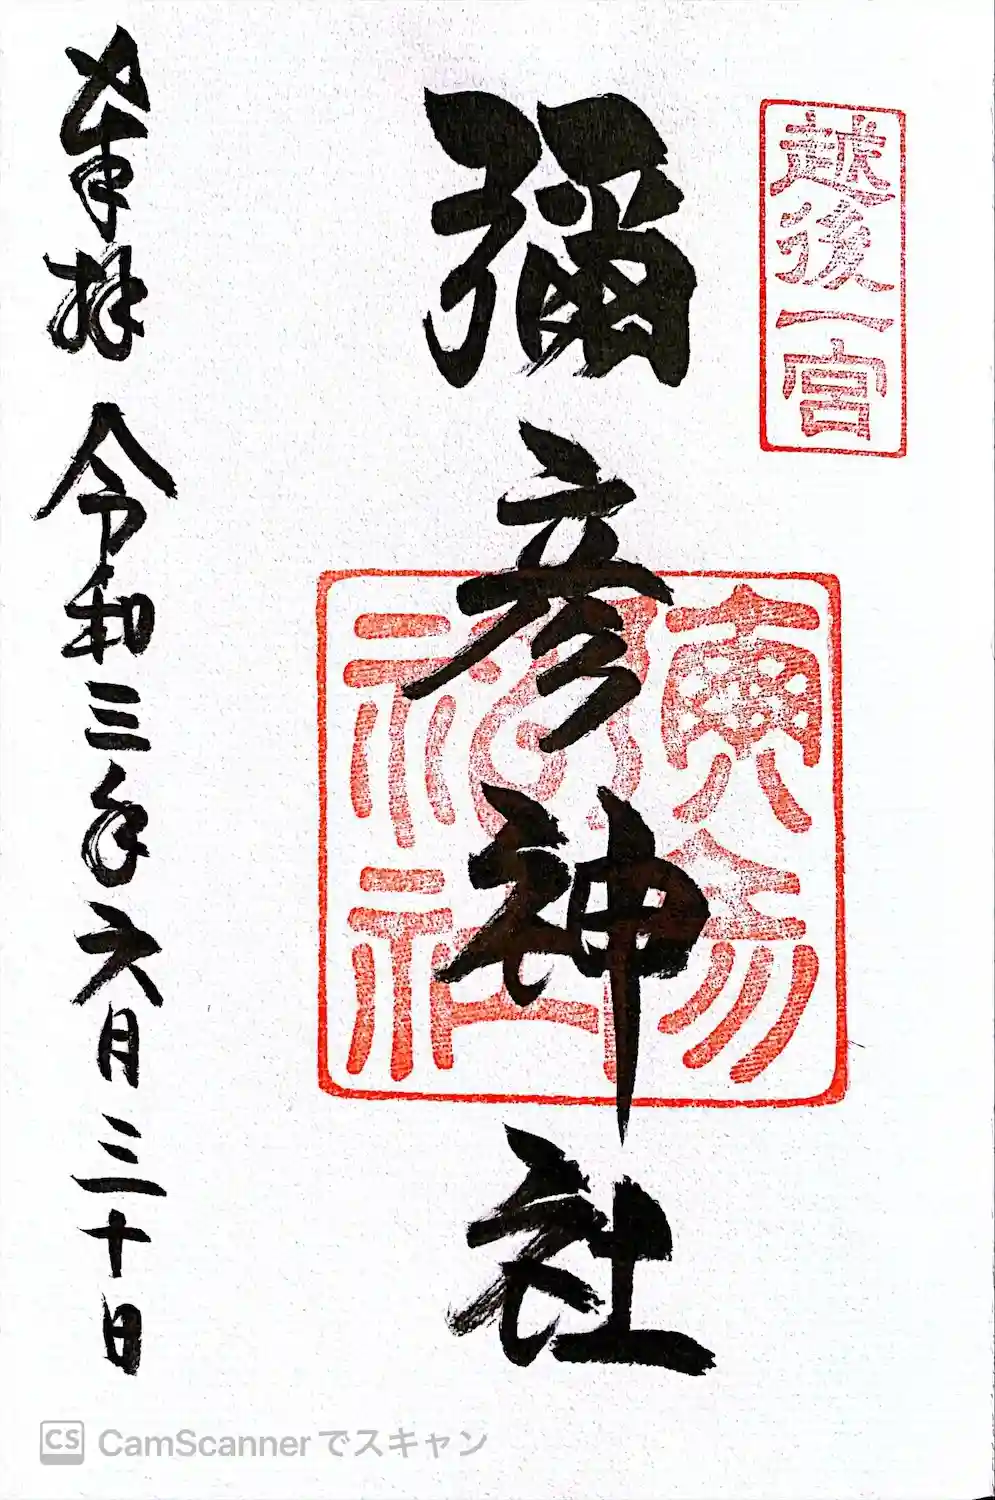 越後一宮
彌彦神社
奉拝 令和三年六月三十日
CS CamScannerでスキャン